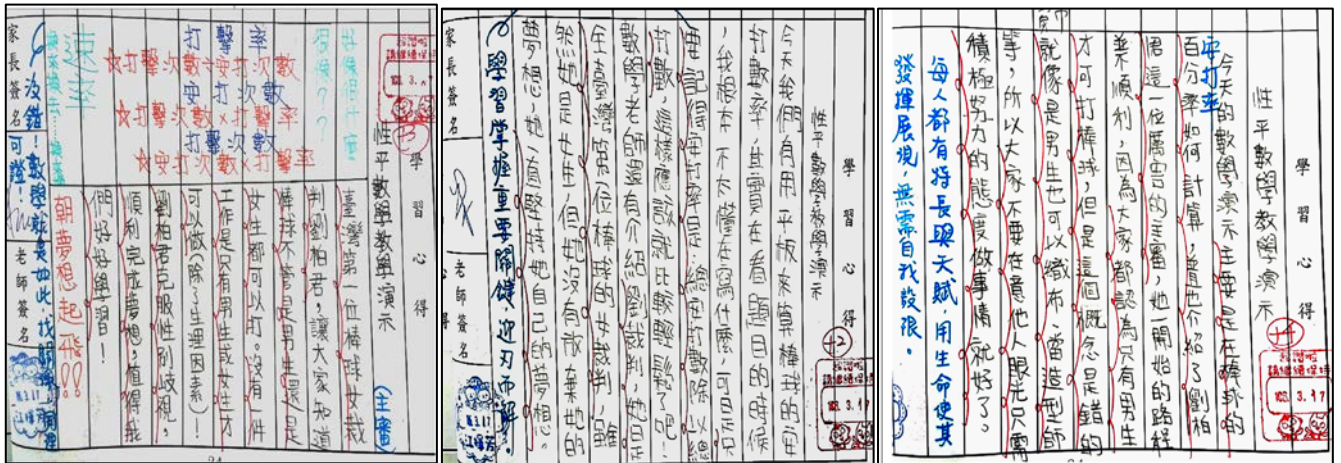 學習心得
性平數學教學演示
(主審)
臺灣第一位棒球女裁
判劉柏君，讓大家知道
棒球不管是男生還是
女生都可以打。沒有一件
工作是只有用生或女生才
可以做(除了生理因素)！
劉柏君克服性別歧視，
順利完成夢想，值得我
們好好學習！
朝夢想起飛!!
打擊率
☆打擊次數÷安打次數
安打次數
☆打擊次數×打擊率
打擊次數
☆安打次數×打擊率
沒錯！數學就是如此，找關係，同理
可證！
家長簽名
老師簽名
學習心得
+2
性平數學教學演示
今天我們有用平版來算棒球的安
打數率，其實在看題目的時候
，我根本不太懂在寫什麼，可是只
要記得安打率是：總安打數除以總
打數，這樣應該就比較輕鬆了吧！
數學老師還有介紹劉裁判，她是
全臺灣第一位棒球的女裁判，雖
然她是女生，但她沒有放棄她的
夢想，她一直堅持她自己的夢想。
學習掌握重要關鍵，迎刃而解。
家長簽名
老師簽名
學習心得
+4
103. 3. 17
性平數學教學演示
今天的數學演示主要是在棒球的
安打率
百分率如何計算，並也介紹了劉柏
君這一位厲害的主審，她一開始的路程
並不順利，因為大家都認為只有男生
才可打棒球，但是這個概念是錯的
就像是男生也可以織布、當造型師
等，所以大家不要在意他人眼光只需
積極努力的態度做事情就好了。
每人都有特長與天賦，用生命使其
發揮展現，無需自我設限。